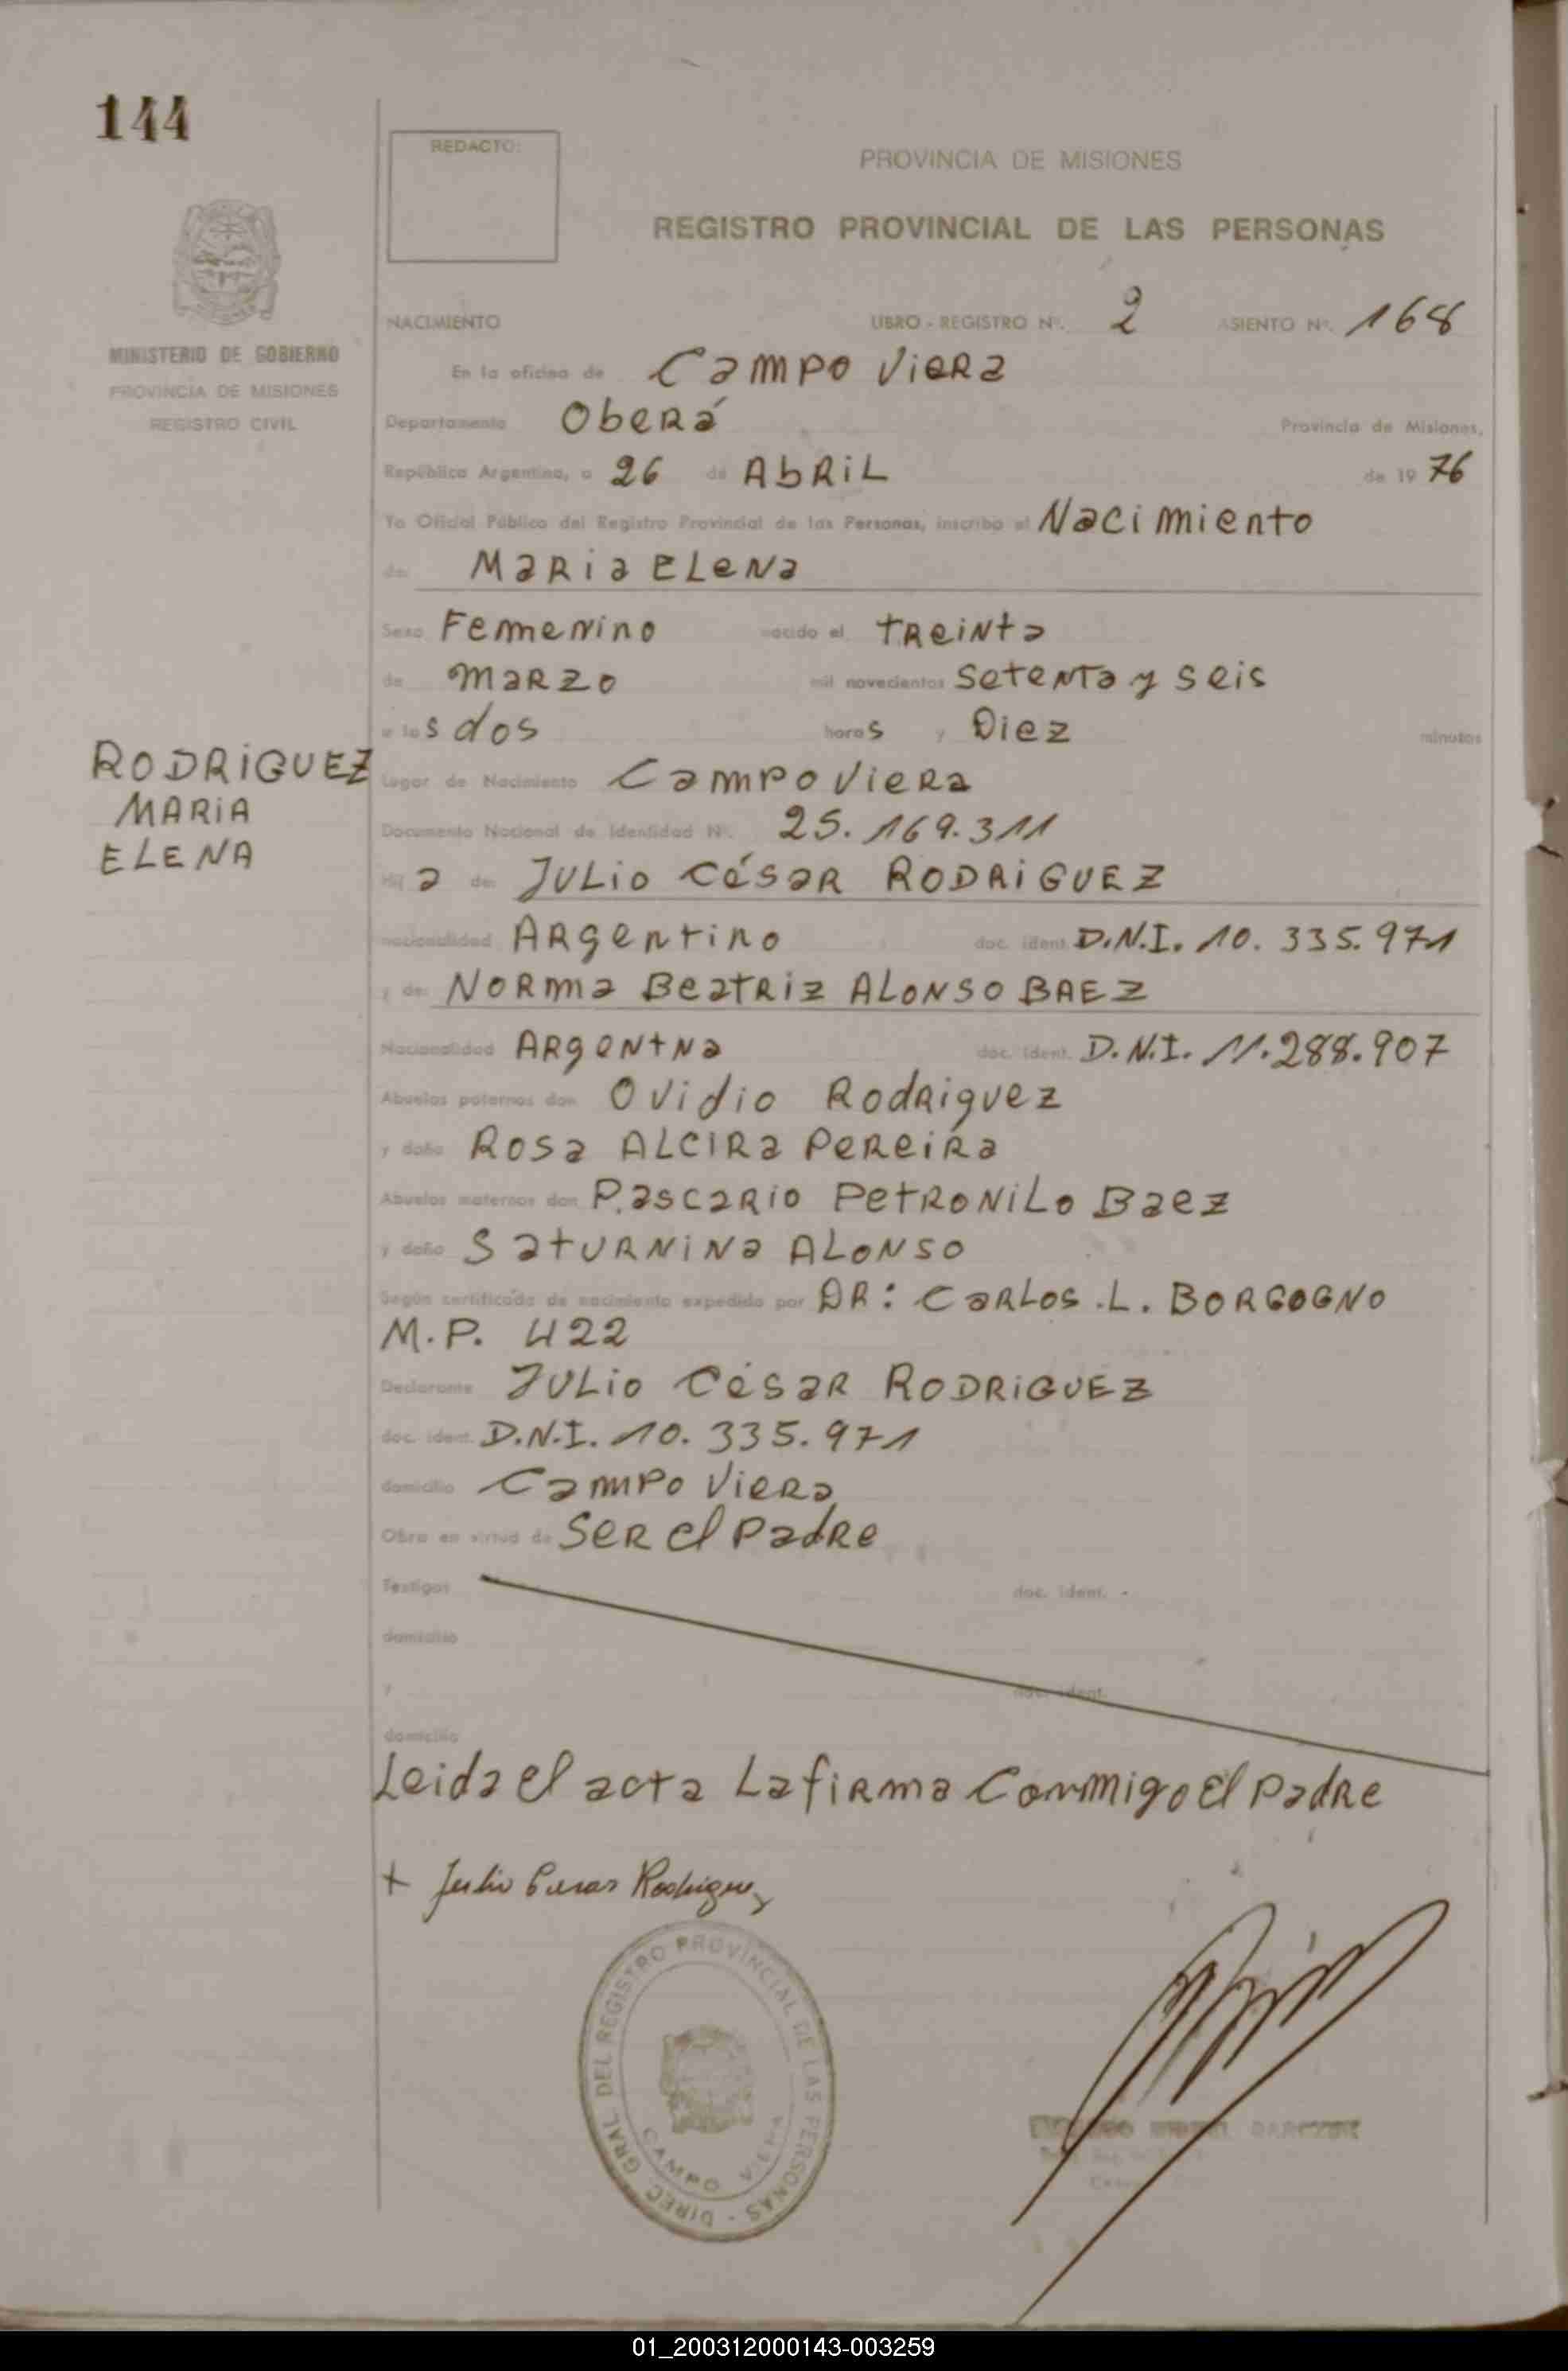 144
REDACTO:
PROVINCIA DE MISIONES
REGISTRO PROVINCIAL DE LAS PERSONAS
MINISTERIO DE GOBIERNO
PROVINCIA DE MISIONES
REGISTRO CIVIL
NACIMIENTO LIBRO - REGISTRO Nº. 2 ASIENTO Nº. 168
En la oficina de Campo Viera
Departamento Oberá Provincia de Misiones,
República Argentina, a 26 de Abril de 19 76
Yo Oficial Público del Registro Provincial de las Personas, inscribo el Nacimiento
de: Maria Elena
Sexo Femenino nacido el treinta
de marzo mil novecientos setenta y seis
a las dos horas y Diez minutos
RODRIGUEZ
MARIA
ELENA
Lugar de Nacimiento Campo Viera
Documento Nacional de Identidad Nº. 25.169.311
Hija de: Julio César RODRIGUEZ
nacionalidad Argentino doc. ident. D.N.I. 10.335.971
y de: Norma Beatriz ALONSO BAEZ
Nacionalidad Argentna doc. ident. D.N.I. 11.288.907
Abuelos paternos don Ovidio Rodriguez
y doña Rosa Alcira Pereira
Abuelos maternos don Pascario Petronilo Baez
y doña Saturnina Alonso
Según certificado de nacimiento expedido por DR: Carlos .L. BORGOGNO
M.P. 422
Declarante Julio César RODRIGUEZ
doc. ident. D.N.I. 10.335.971
domicilio Campo Viera
Obra en virtud de ser el padre
Testigos doc. ident. -
domicilio
y doc. ident.
domicilio
Leida el acta La firma conmigo el padre
+ Julio Cesar Rodriguez
DIREC. GRAL. DEL REGISTRO PROVINCIAL DE LAS PERSONAS -
CAMPO VIERA
01_200312000143-003259